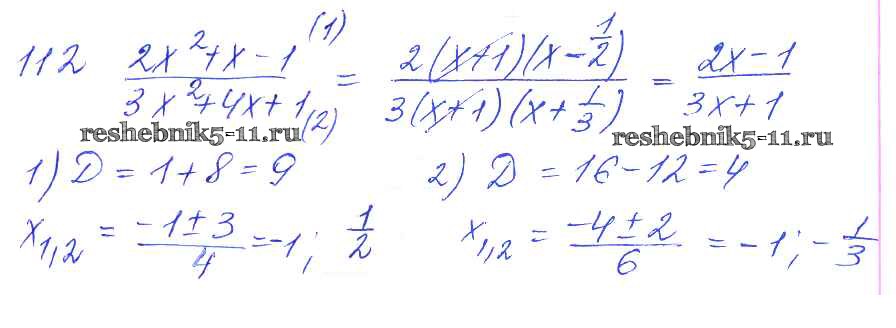 112 (2x²+x-1)(1) / (3x²+4x+1)(2) = 2(x+1)(x-1/2) / 3(x+1)(x+1/3) = (2x-1) / (3x+1)
reshebnik5-11.ru reshebnik5-11.ru
1) D = 1+8=9 2) D = 16-12=4
x₁,₂ = (-1±3)/4 = -1; 1/2 x₁,₂ = (-4±2)/6 = -1; -1/3